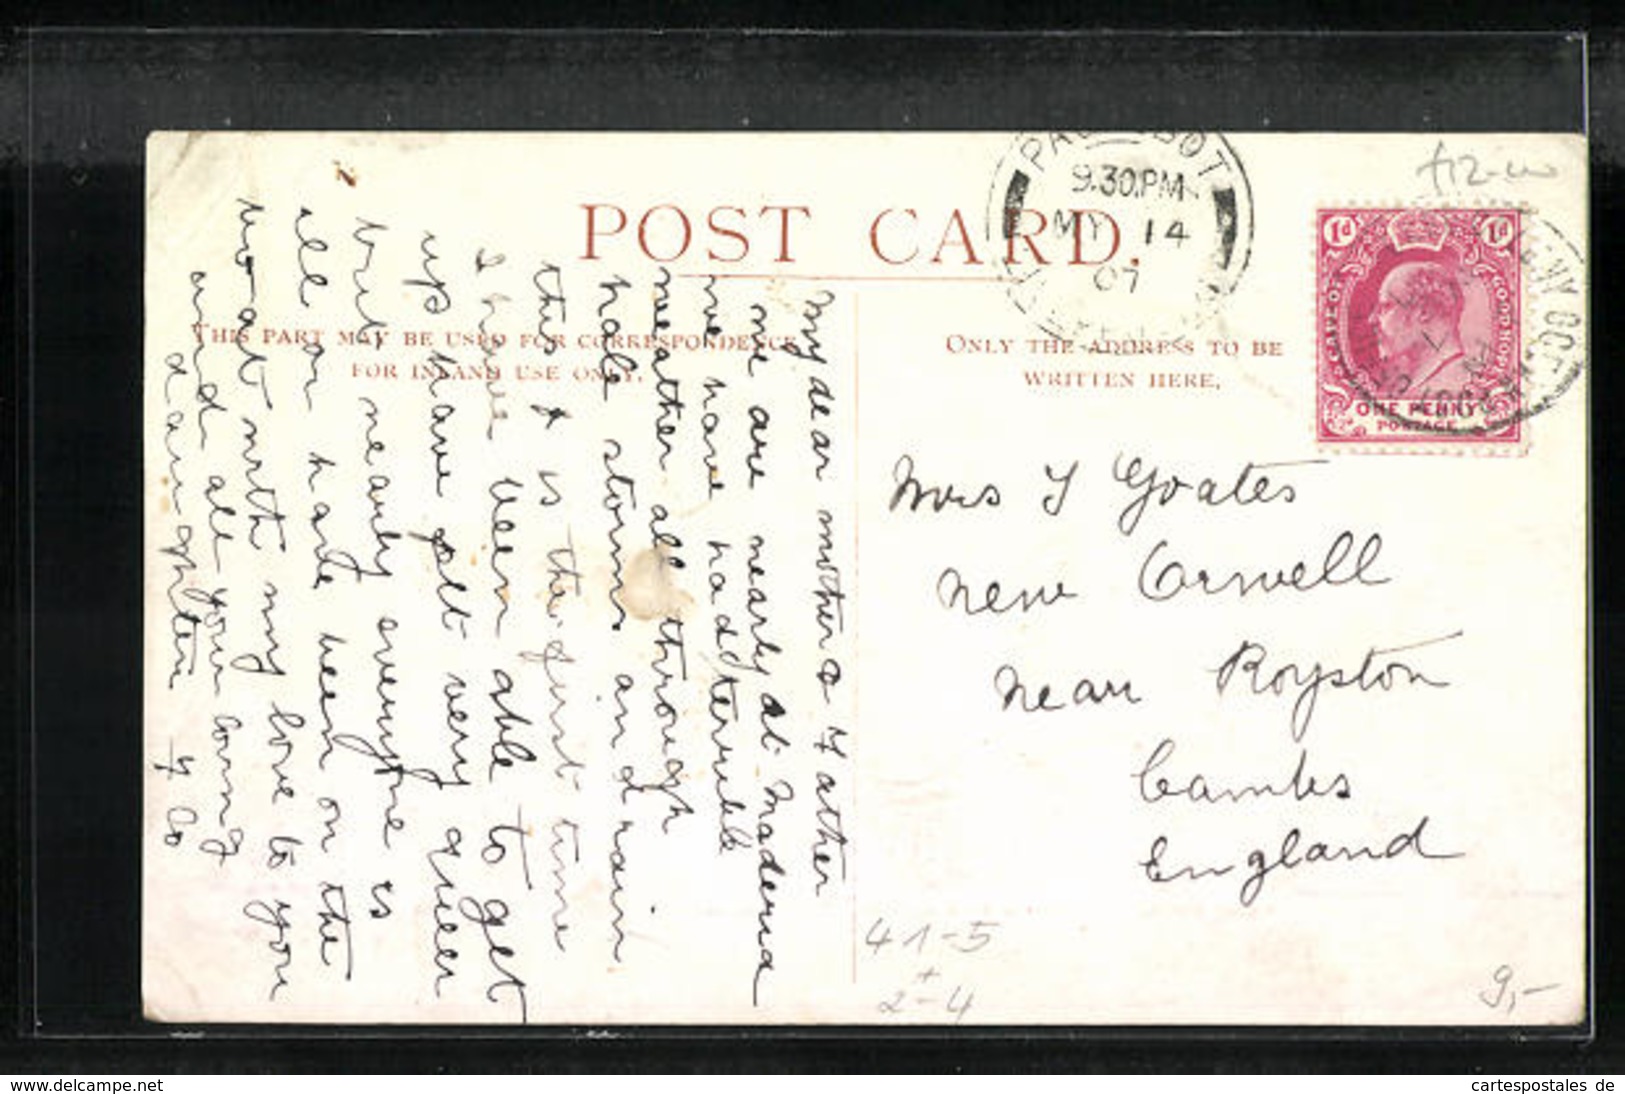 POST CARD.
THIS PART MAY BE USED FOR CORRESPONDENCE
FOR INLAND USE ONLY.
ONLY THE ADDRESS TO BE
WRITTEN HERE,
9.30.PM
MY 14
07
1d 1d
CAPE OF GOOD HOPE
ONE PENNY
POSTAGE
My dear mother & Father
we are nearly at Maderia
we have had terrible
weather all through
hale storms and rain
this is the first time
I have been able to get
up have felt very queer
but nearly everyone is
all on have been on the
boat with my love to you
and all your loving
daughter
Mrs J Goates
New Orwell
near Royston
Cambs
England
41-5
+
2-4
9,-
www.delcampe.net
cartespostales de